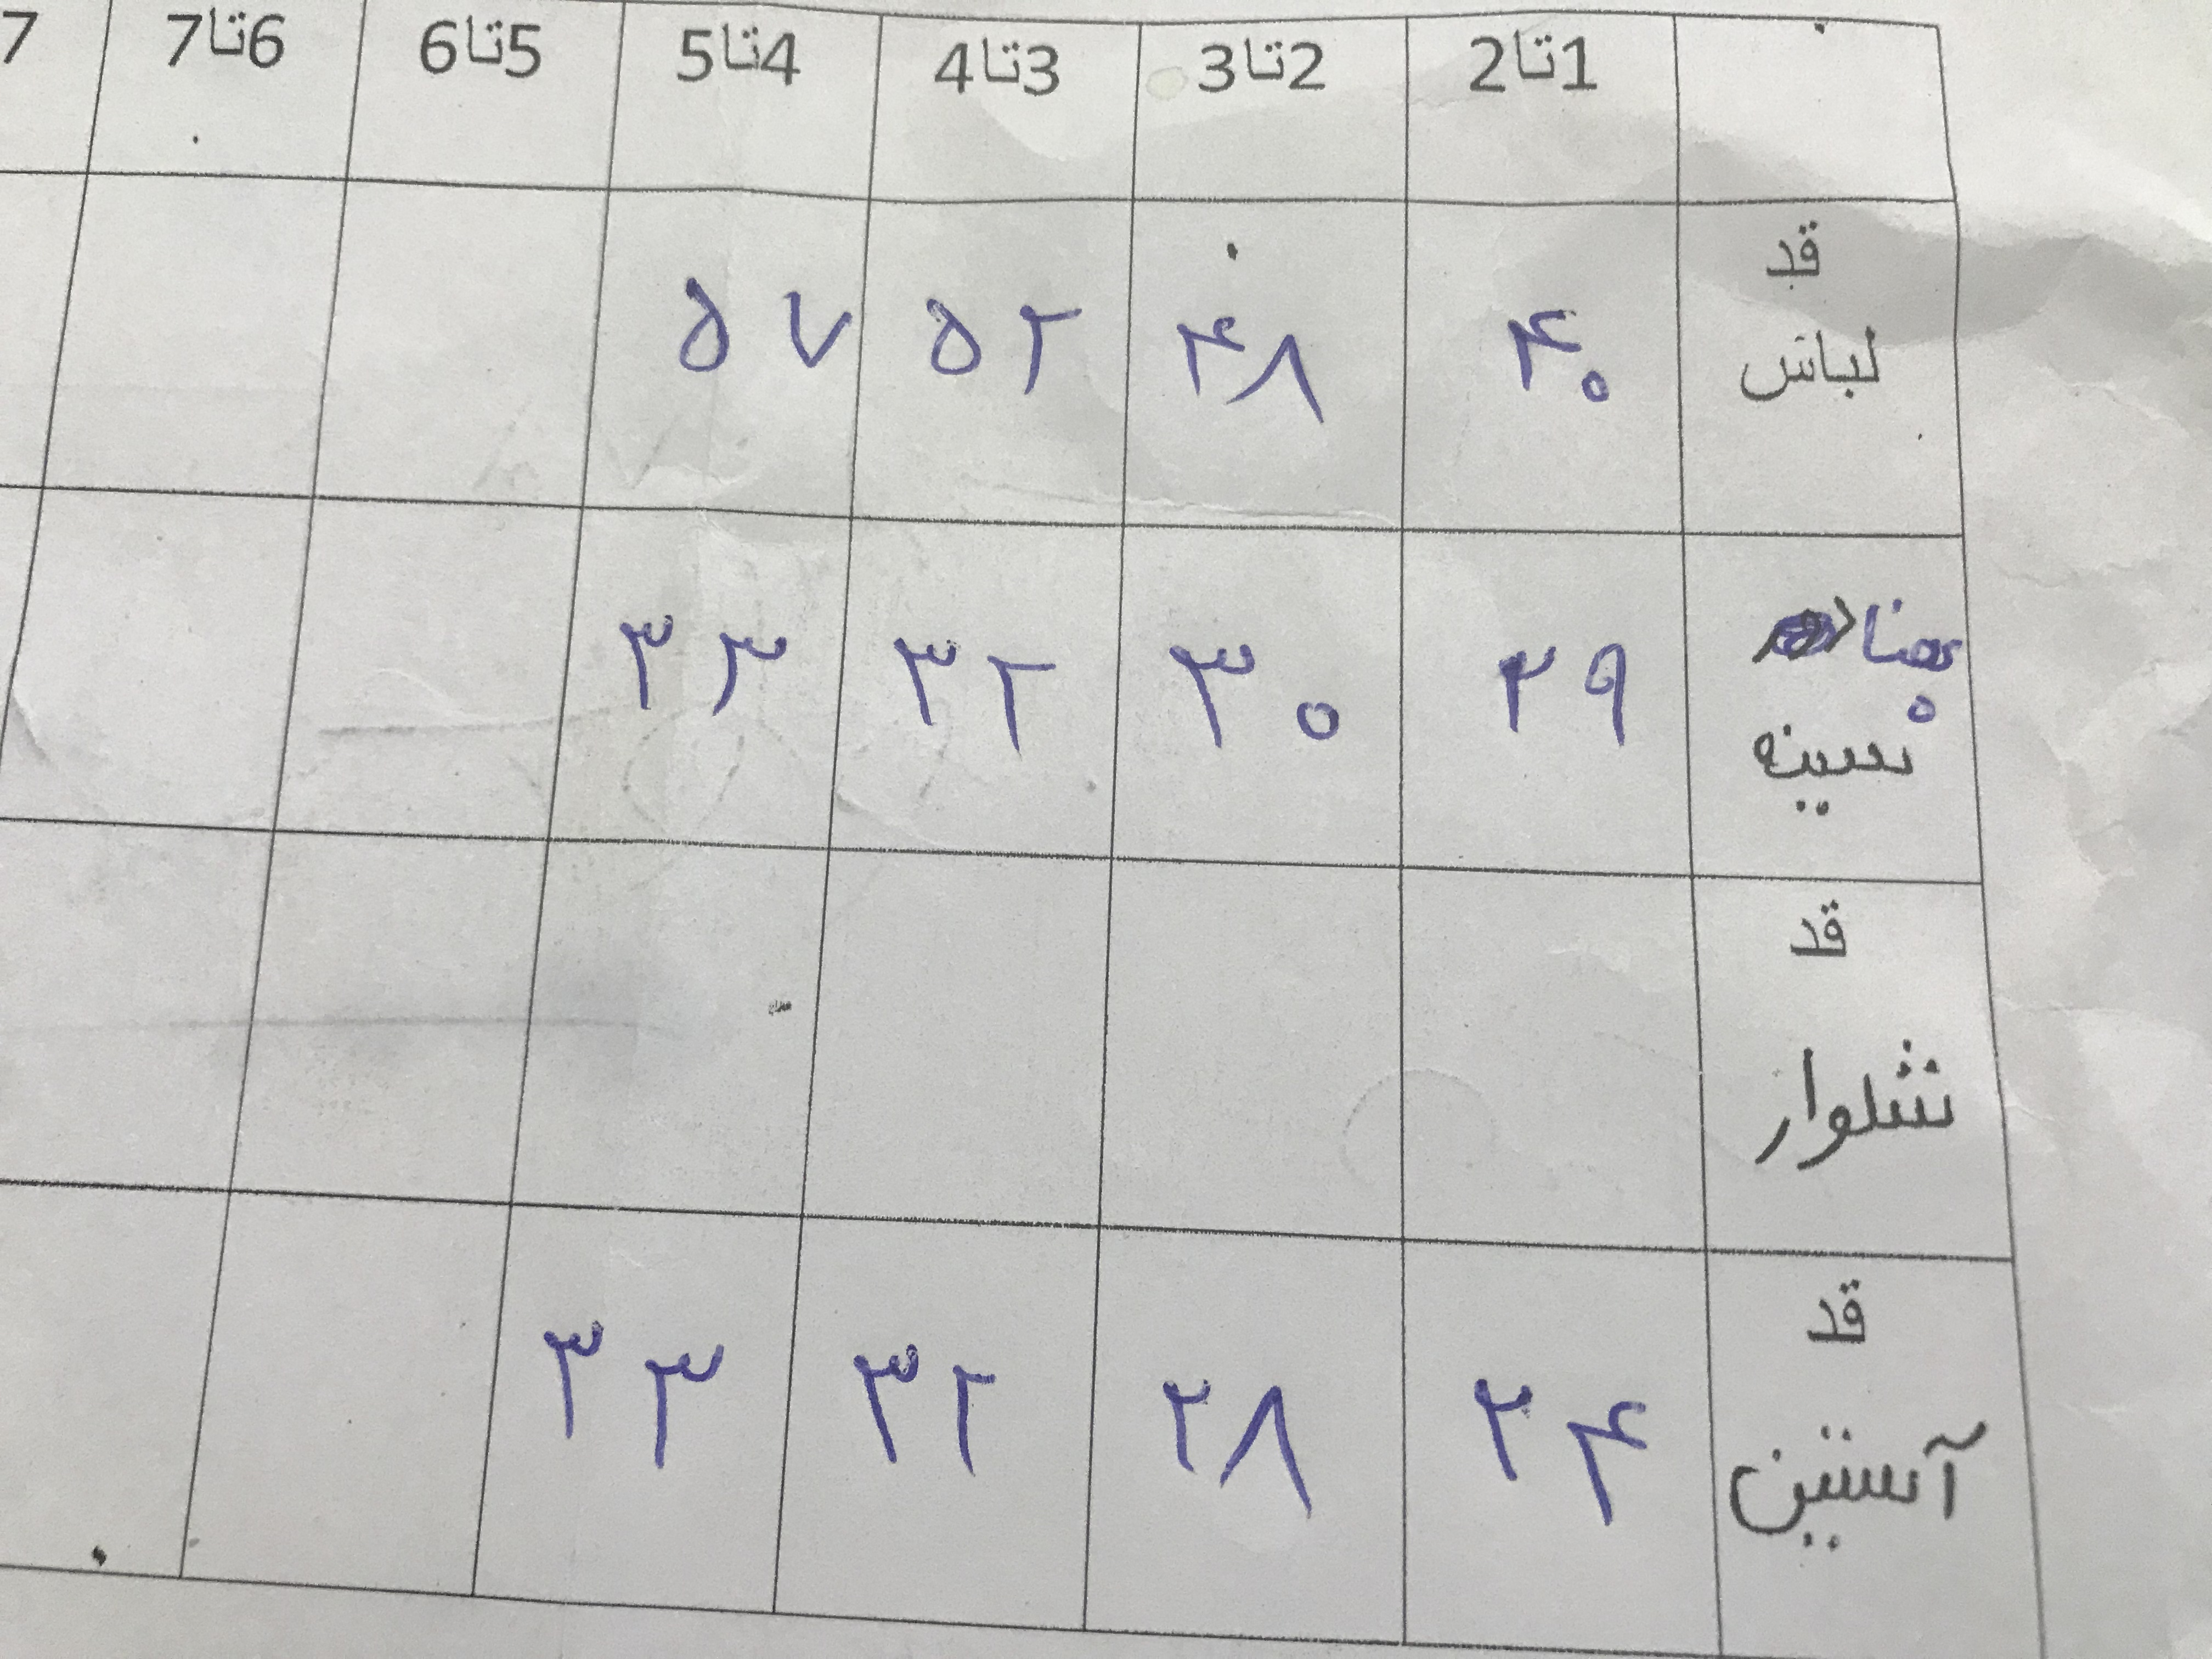 1تا2 2تا3 3تا4 4تا5 5تا6 6تا7 7
قد لباس ۴۰ ۴۸ ۵۲ ۵۷
پهنا سینه ۲۹ ۳۰ ۳۲ ۳۳
قد شلوار
قد آستین ۲۴ ۲۸ ۳۲ ۳۳